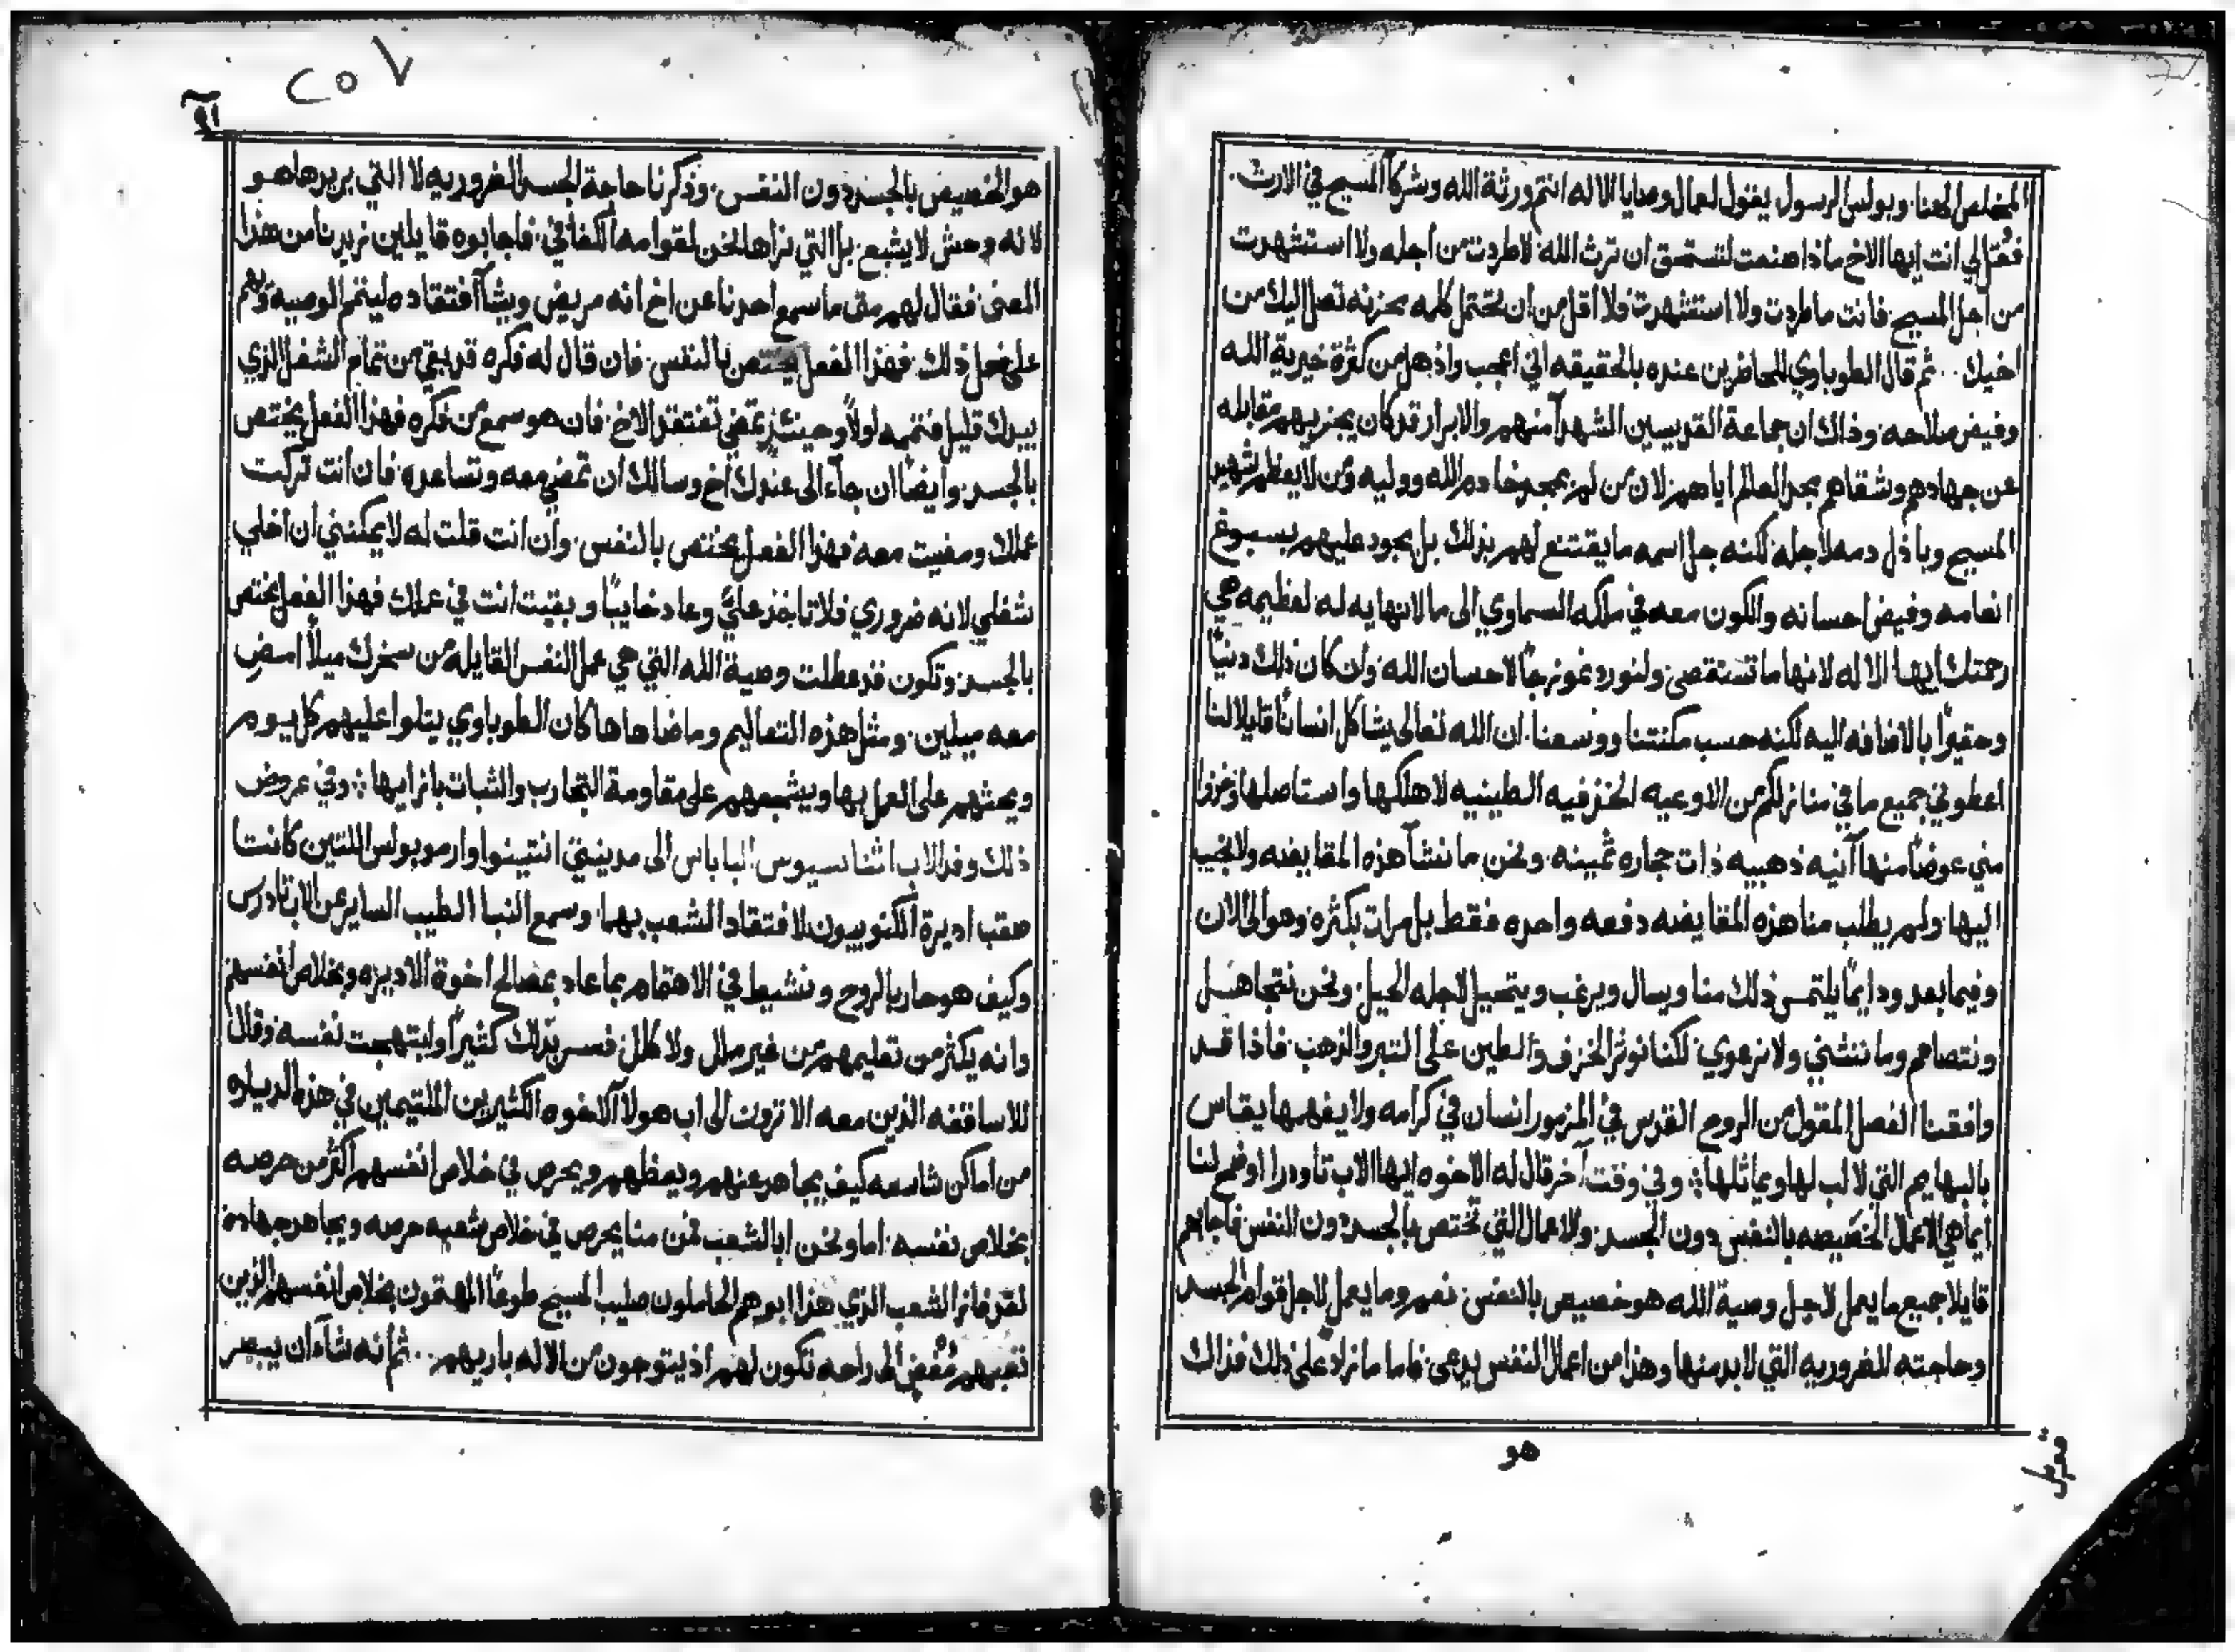 المخلص الهنا. وبولس الرسول يقول لعمال وصايا الاله انتم ورثة الله وشركآ المسيح في الارث.
فقل لي انت ايها الاخ ماذا صنعت لتستحق ان ترث الله لا طردت من اجله ولا استشهرت
من اجل المسيح. فانت ما طردت ولا استشهرت فلا اقل من ان تحتمل كلمه محزنه تصل اليك من
اخيك.. ثم قال الطوباوي للحاضرين عنده بالحقيقه اني اعجب واذهل من كثرة خيرية الله
وفيض صلاحه. وذاك ان جماعة القديسين الشهدآ منهم والابرار قد كان يجزيهم مقابله
عن جهادهم وشقاهم مجد العالم اياهم. لان من لم يمجد خادم الله ووليه ومن لا يعظم شهيد
المسيح وباذل دمه لاجله. لكنه جل اسمه ما يقتنع لهم بذلك بل يجود عليهم بسبوغ
انعامه وفيض احسانه والكون معه في ملكه السماوي الى ما لا نهايه له. لعظيمه هي
رحمتك ايها الاله لانها ما تستقصى. ولنورد نموذجًا لاحسان الله. وان كان ذلك دنيًا
وحقيرًا بالاضافه اليه لكنه حسب مكنتنا ووسعنا. ان الله تعالى يشاكل انسانًا قايلا لنا
اعطوني جميع ما في منازلكم من الاوعيه الخزفيه الطينيه لاهلكها واستاصلها وخذوا
مني عوضًا منها آنيه ذهبيه ذات حجاره ثمينه. ونحن ما نشآ هذه المقايضه ولا نجيب
اليها. ولم يطلب منا هذه المقايضه دفعه واحده فقط بل مرات بكثره. وهو الى الان
وفيما بعد ودايمًا يلتمس ذلك منا ويسال ويرغب ويتحيل لاجله الحيل. ونحن نتجاهل
ونتصامم وما ننثني ولا نرعوي. لكنا نوثر الخزف والطين على التبر والذهب. فاذا قد
وافقنا الفصل المقول من الروح القدس في المزمور انسان في كرامه ولا يفهمها يقاس
بالبهايم التي لا لب لها ويماثلها: وفي وقت آخر قال له الاخوه ايها الاب تاودرا اوضح لنا
ايما هي الاعمال الخصيصه بالنفس دون الجسد. والاعمال التي تختص بالجسد دون النفس فاجابهم
قايلا جميع ما يعمل لاجل وصية الله هو خصيص بالنفس. نعم وما يعمل لاجل قوام الجسد
وحاجته الضروريه التي لا بد منها وهذا من اعمال النفس يدعى. فاما ما زاد على ذلك فذاك
هو
هو الخصيص بالجسد دون النفس. وذكرنا حاجة الجسد الضروريه لا التي يريدها هو
لانه وحش لا يشبع. بل التي نراها نحن لقوامه الكفافي. فاجابوه قايلين زيدنا من هذا
المعنى. فقال لهم متى ما سمع احدنا عن اخ انه مريض ويشآ افتقاده ليتم الوصيه
على فعل ذلك. فهذا الفعل يختص بالنفس. فان قال له فكره قد بقي من تمام الشغل الذي
بيدك قليل فتممه اولاً وحينئذٍ تمضي تفتقد الاخ. فان هو سمع من فكره فهذا الفعل يختص
بالجسد. وايضًا ان جآء الى عندك اخ وسالك ان تمضي معه وتساعده. فان انت تركت
عملك ومضيت معه فهذا الفعل يختص بالنفس. وان انت قلت له لا يمكنني ان اخلي
شغلي لانه ضروري فلا تاخذ عليَّ وعاد خايبًا وبقيت انت في عملك فهذا الفعل يختص
بالجسد. وتكون قد عطلت وصية الله التي هي عمل النفس القايله من سخرك ميلاً امضِ
معه ميلين. ومثل هذه التعاليم وما ضاهاها كان الطوباوي يتلوا عليهم كل يوم
ويحثهم على العمل بها ويشجعهم على مقاومة التجارب والثبات بازايها: وفي عروض
ذلك وفد الاب اثناسيوس البابا بس الى مدينتي انتينوا وارموبولس اللتين كانتا
صقب اديرة الكنوبيون لافتقاد الشعب بهما. وسمع النبا الطيب الساير عن الاب تادرس
وكيف هو حار بالروح ونشيط في الاهتمام بما عاد بمصالح اخوة الاديره وبخلاص انفسهم
وانه يكثر من تعليمهم من غير ملل ولا كلل. فسر بذلك كثيرًا وابتهجت نفسه. وقال
للاساقفه الذين معه الا ترون الى اب هولآ الاخوه الكثيرين الملتيمين في هذه الدياره
من اماكن شاسعه كيف يجاهد عنهم ويعظهم ويحرص في خلاص انفسهم اكثر من حرصه
بخلاص نفسه. اما ونحن ابا الشعب فمن منا يحرص في خلاص شعبه حرصه ويجاهد جهاده
لقد فاز الشعب الذي هذا ابوهم الحاملون صليب المسيح طوعًا المهتمون بخلاص انفسهم الذين
تعبهم مُفْضٍ الى راحه تكون لهم اذ يتوجون من الاله باريهم.. ثم انه شآءَ ان يبصر